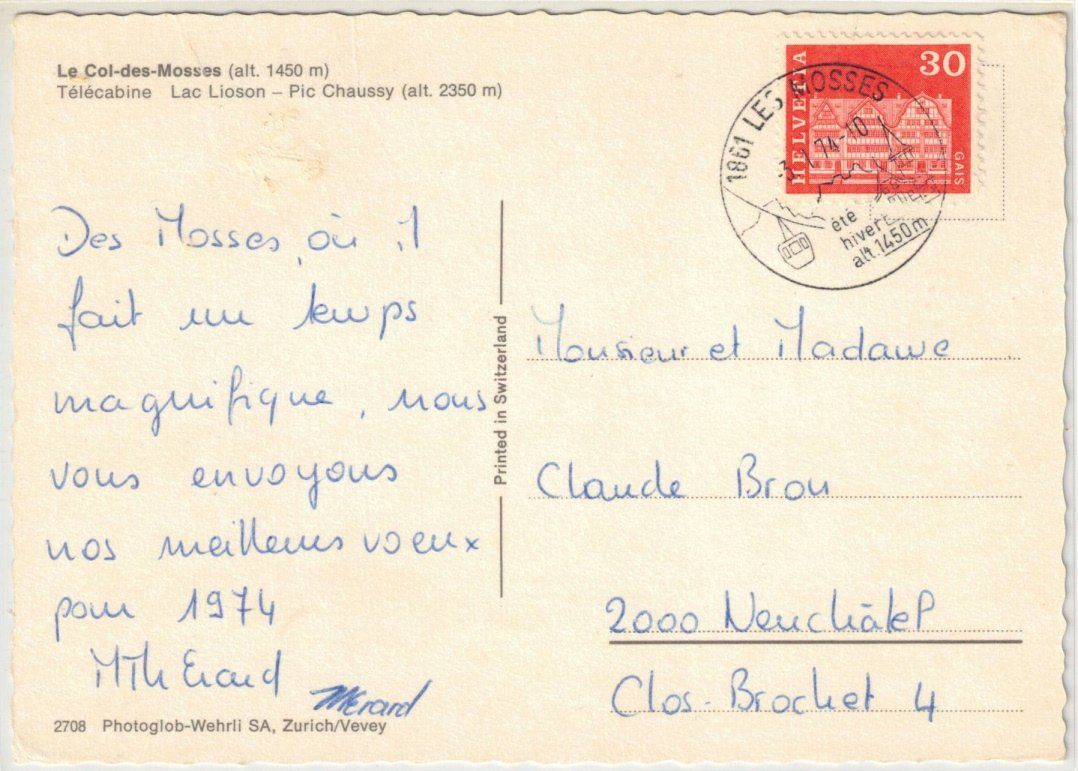 Le Col-des-Mosses (alt. 1450 m)
Télécabine Lac Lioson – Pic Chaussy (alt. 2350 m)
HELVETIA
30
GAIS
1861 LES MOSSES
74-10
été
hiver
alt. 1450 m
Des Mosses, où il
fait un temps
magnifique, nous
vous envoyons
nos meilleurs voeux
pour 1974
MTh Erard
MErard
2708 Photoglob-Wehrli SA, Zurich/Vevey
Printed in Switzerland
Monsieur et Madame
Claude Bron
2000 Neuchâtel
Clos-Brochet 4